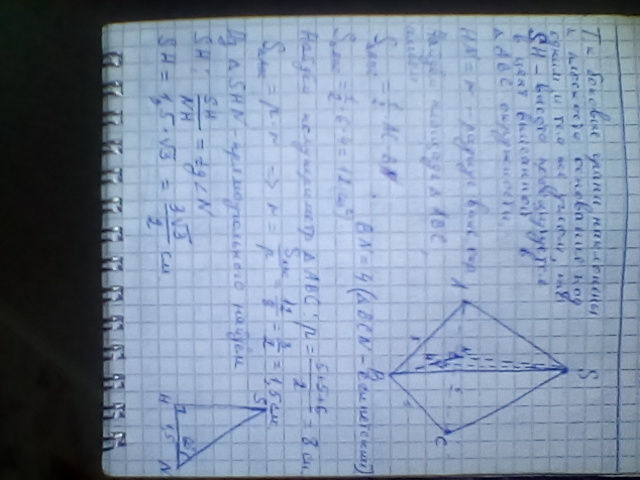 Т.к боковые грани наклонены
к плоскости основания под
одним и тем же углом, то
SH - высота проецируется
в центр вписанной в
△ABC окружности.
HN = r - радиус вписан
Найдём площадь △ABC,
S = 1/2 · AC · BN,
BN = 4 (△BCN - египетский)
S = 1/2 · 6 · 4 = 12 см²
Найдём полупериметр △ABC: p = 5+5+6/2 = 8 см
S = p · r => r = S/p = 12/8 = 3/2 = 1,5 см
Из △SHN - прямоугольного найдём
SH: SH/NH = tg∠N
SH = 1,5 · √3 = 3√3/2 см
A
B
C
S
5
S
H
1,5
N